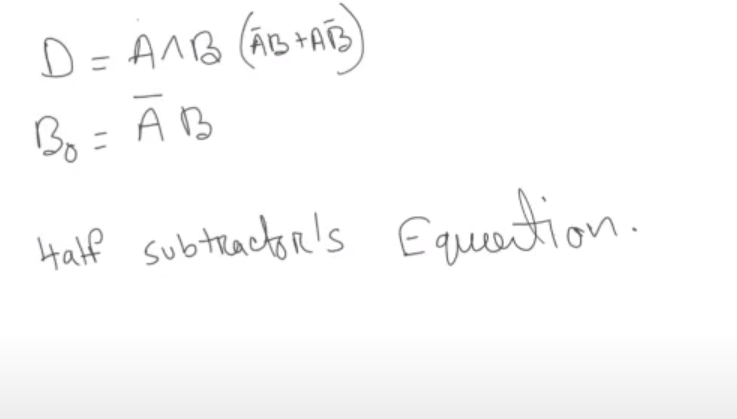 D = A∧B (A̅B + AB̅)
B₀ = A̅ B
Half subtractor's Equation.